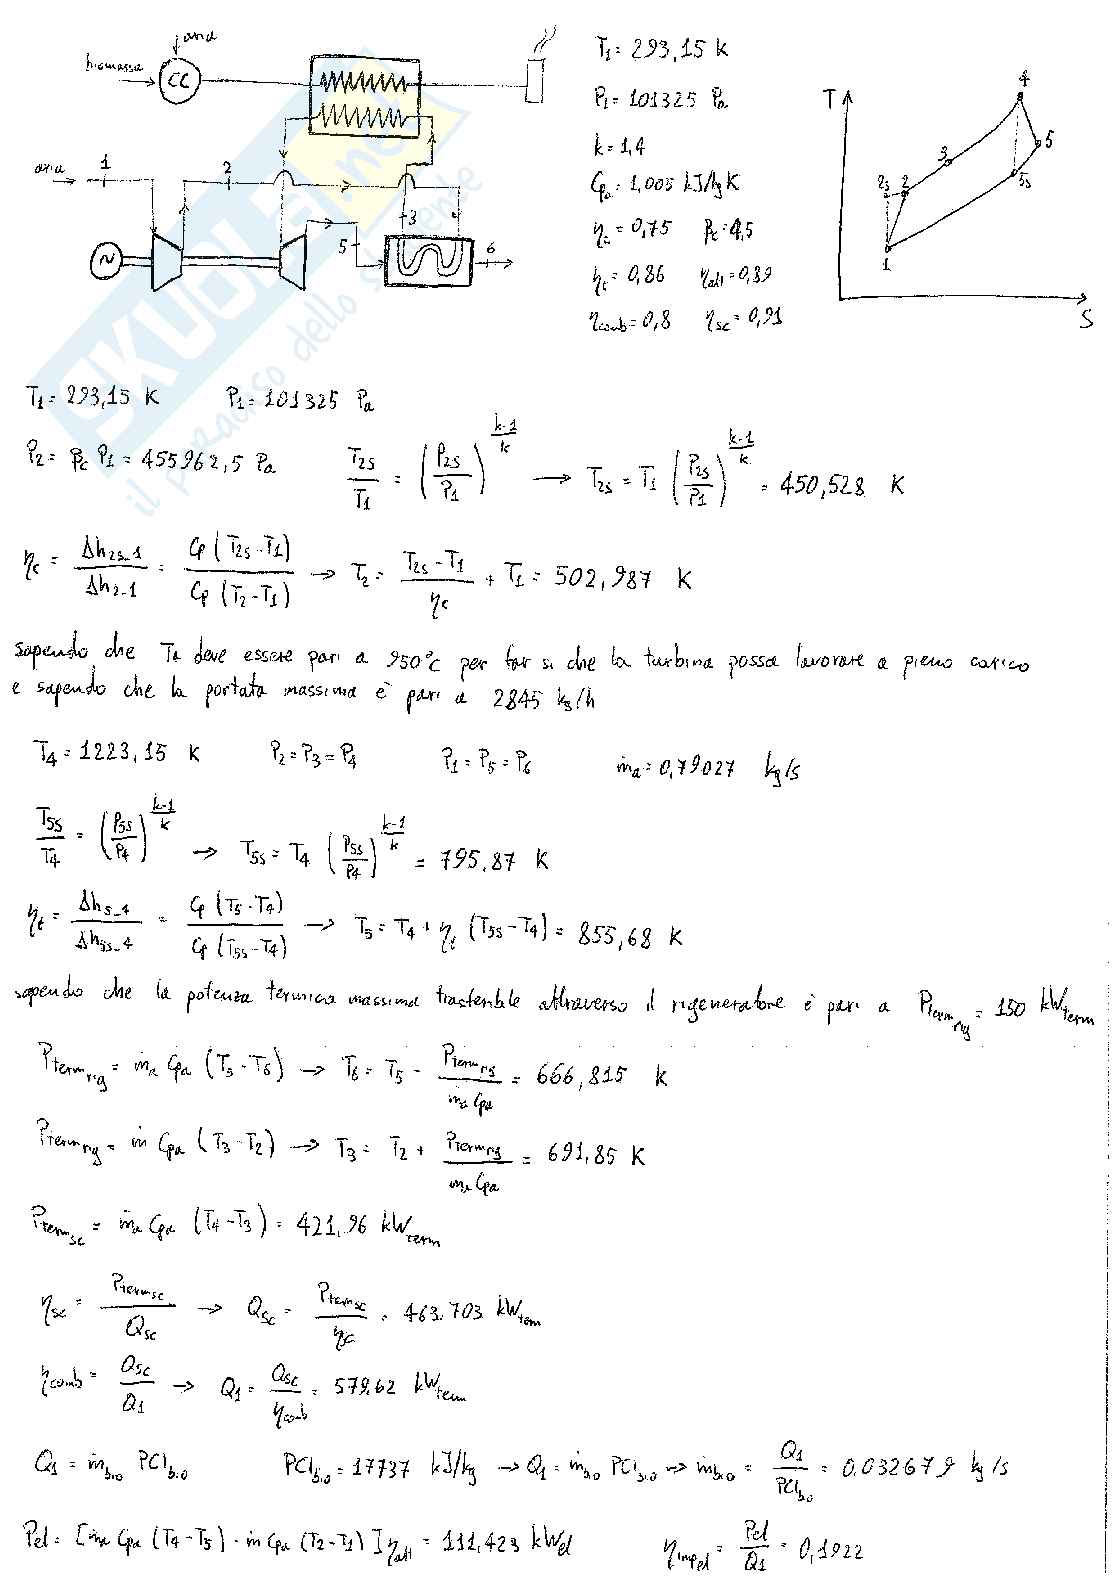 aria
biomassa
CC
T1 = 293,15 K
P1 = 101325 Pa
k = 1,4
Cpa = 1,005 kJ/kgK
ηc = 0,75 βc = 4,5
ηt = 0,86 ηall = 0,89
ηcomb = 0,8 ηsc = 0,91
aria 1 2 3 5 6
N
T
4
3
5
2s 2
5s
1
S
SKUOLA.net
il paradiso dello studente
T1 = 293,15 K P1 = 101325 Pa
P2 = βc P1 = 455962,5 Pa T2s/T1 = (P2s/P1)^(k-1/k) → T2s = T1 (P2s/P1)^(k-1/k) = 450,528 K
ηc = Δh2s-1/Δh2-1 = Cp (T2s-T1)/Cp (T2-T1) → T2 = (T2s-T1)/ηc + T1 = 502,987 K
sapendo che T4 deve essere pari a 950°C per far si che la turbina possa lavorare a pieno carico
e sapendo che la portata massima è pari a 2845 kg/h
T4 = 1223,15 K P2 = P3 = P4 P1 = P5 = P6 ṁa = 0,79027 kg/s
T5s/T4 = (P5s/P4)^(k-1/k) → T5s = T4 (P5s/P4)^(k-1/k) = 795,87 K
ηt = Δh5-4/Δh5s-4 = Cp (T5-T4)/Cp (T5s-T4) → T5 = T4 + ηt (T5s-T4) = 855,68 K
sapendo che la potenza termica massima trasferibile attraverso il rigeneratore è pari a Ptermrig = 150 kWterm
Ptermrig = ṁa Cpa (T5-T6) → T6 = T5 - Ptermrig/ṁa Cpa = 666,815 K
Ptermrig = ṁ Cpa (T3-T2) → T3 = T2 + Ptermrig/ṁa Cpa = 691,85 K
Ptermsc = ṁa Cpa (T4-T3) = 421,96 kWterm
ηsc = Ptermsc/Qsc → Qsc = Ptermsc/ηc = 463.703 kWterm
ηcomb = Qsc/Q1 → Q1 = Qsc/ηcomb = 579.62 kWterm
Q1 = ṁbio PCIbio PCIbio = 17737 kJ/kg → Q1 = ṁbio PCIbio → ṁbio = Q1/PCIbio = 0.032679 kg/s
Pel = [ṁa Cpa (T4-T5) - ṁ Cpa (T2-T1)] ηall = 111,423 kWel ηimpel = Pel/Q1 = 0,1922